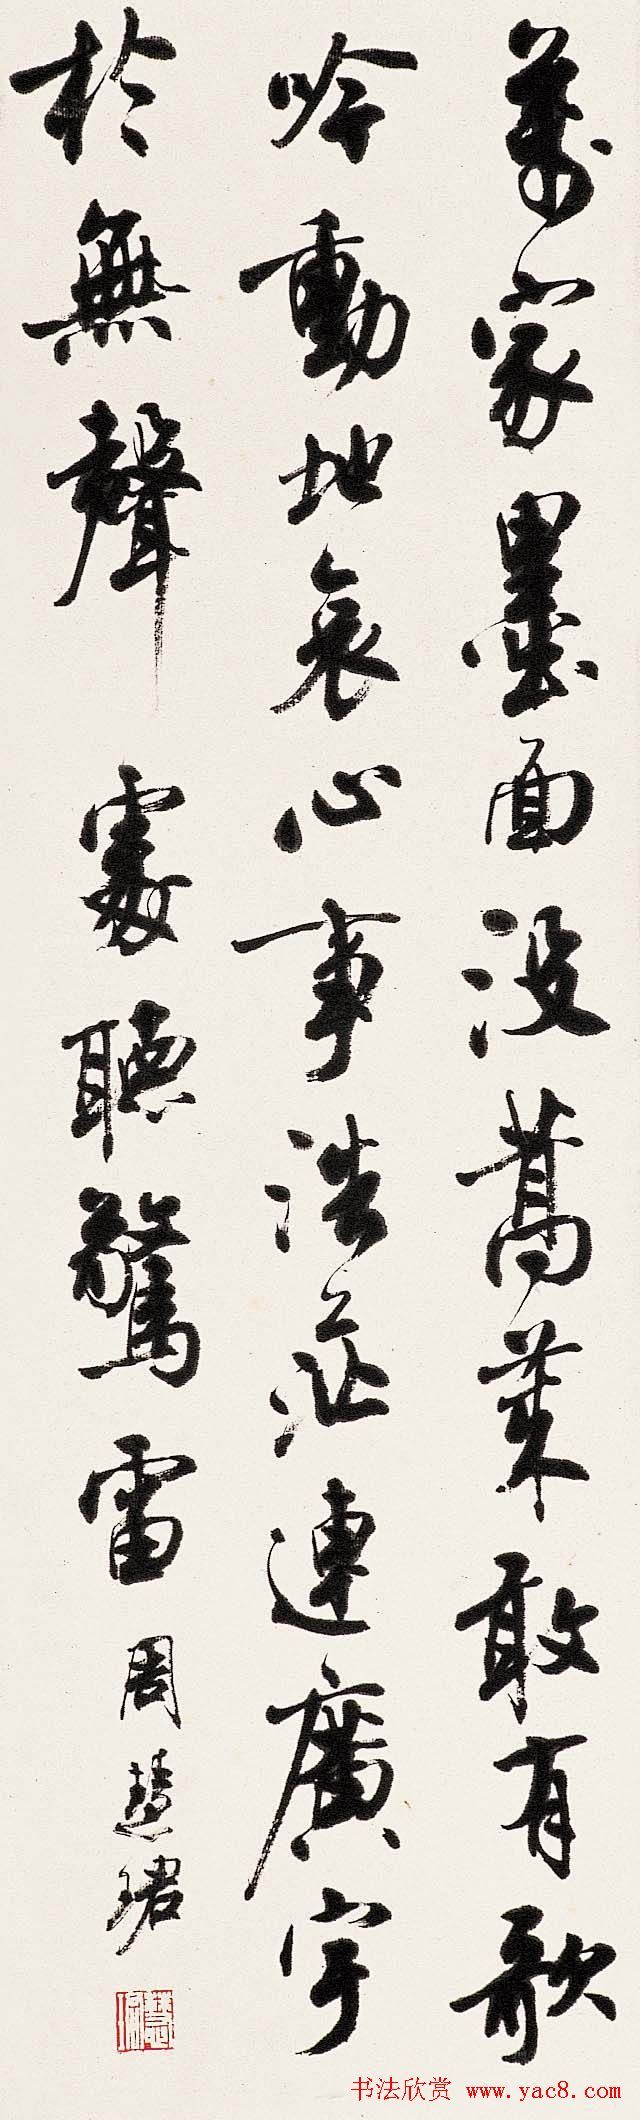 萬家墨面没蒿莱敢有歌
吟動地哀心事浩茫連廣宇
於無聲處聽驚雷
周慧珺
书法欣赏 www.yac8.com